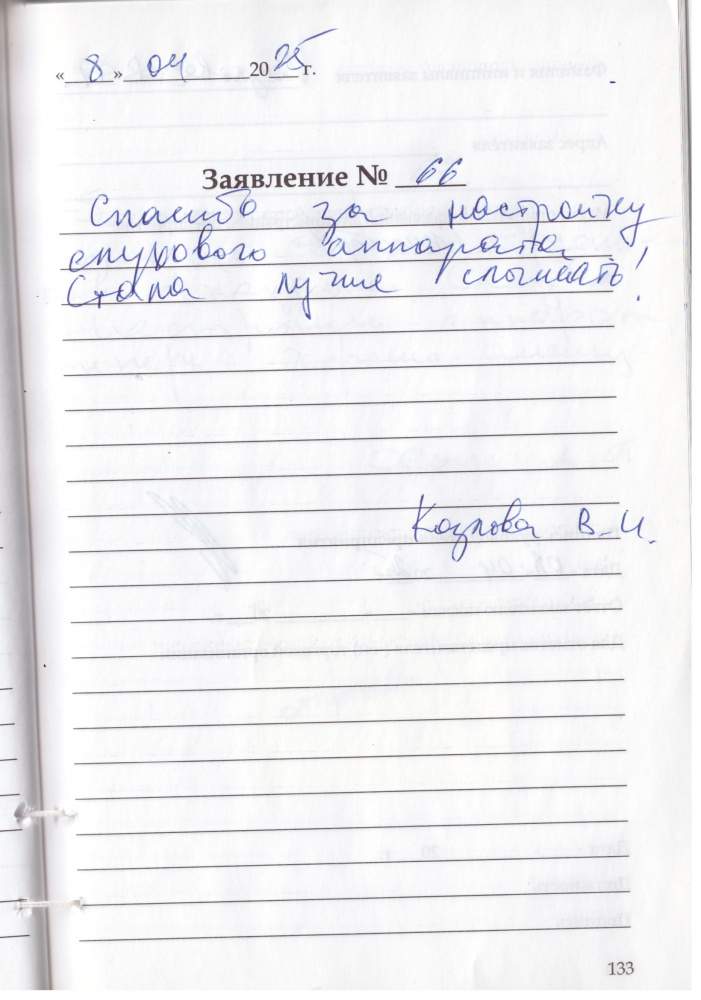 « 8 » 04 2025 г.
Заявление № 66
Спасибо за настройку
слухового аппарата.
Стала лучше слышать!
Козлова В.И.
133